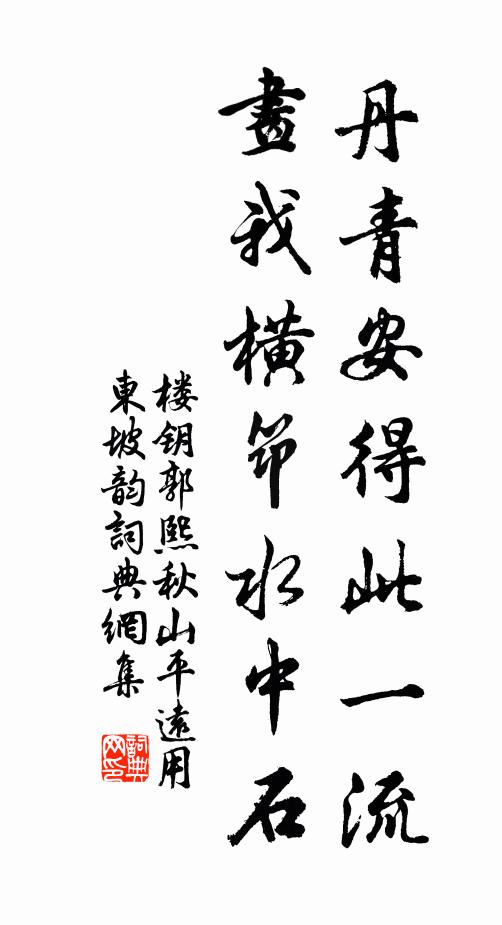 丹青安得此一流
畫我橫笻水中石
楼钥郭熙秋山平遠用
東坡韵詞典網集
詞典
网印